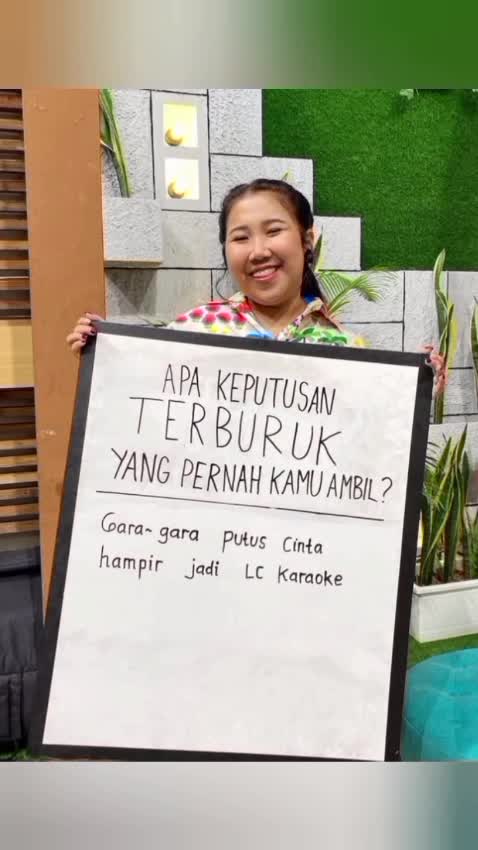 APA KEPUTUSAN
TERBURUK
YANG PERNAH KAMU AMBIL?
Gara-gara putus cinta
hampir jadi LC Karaoke